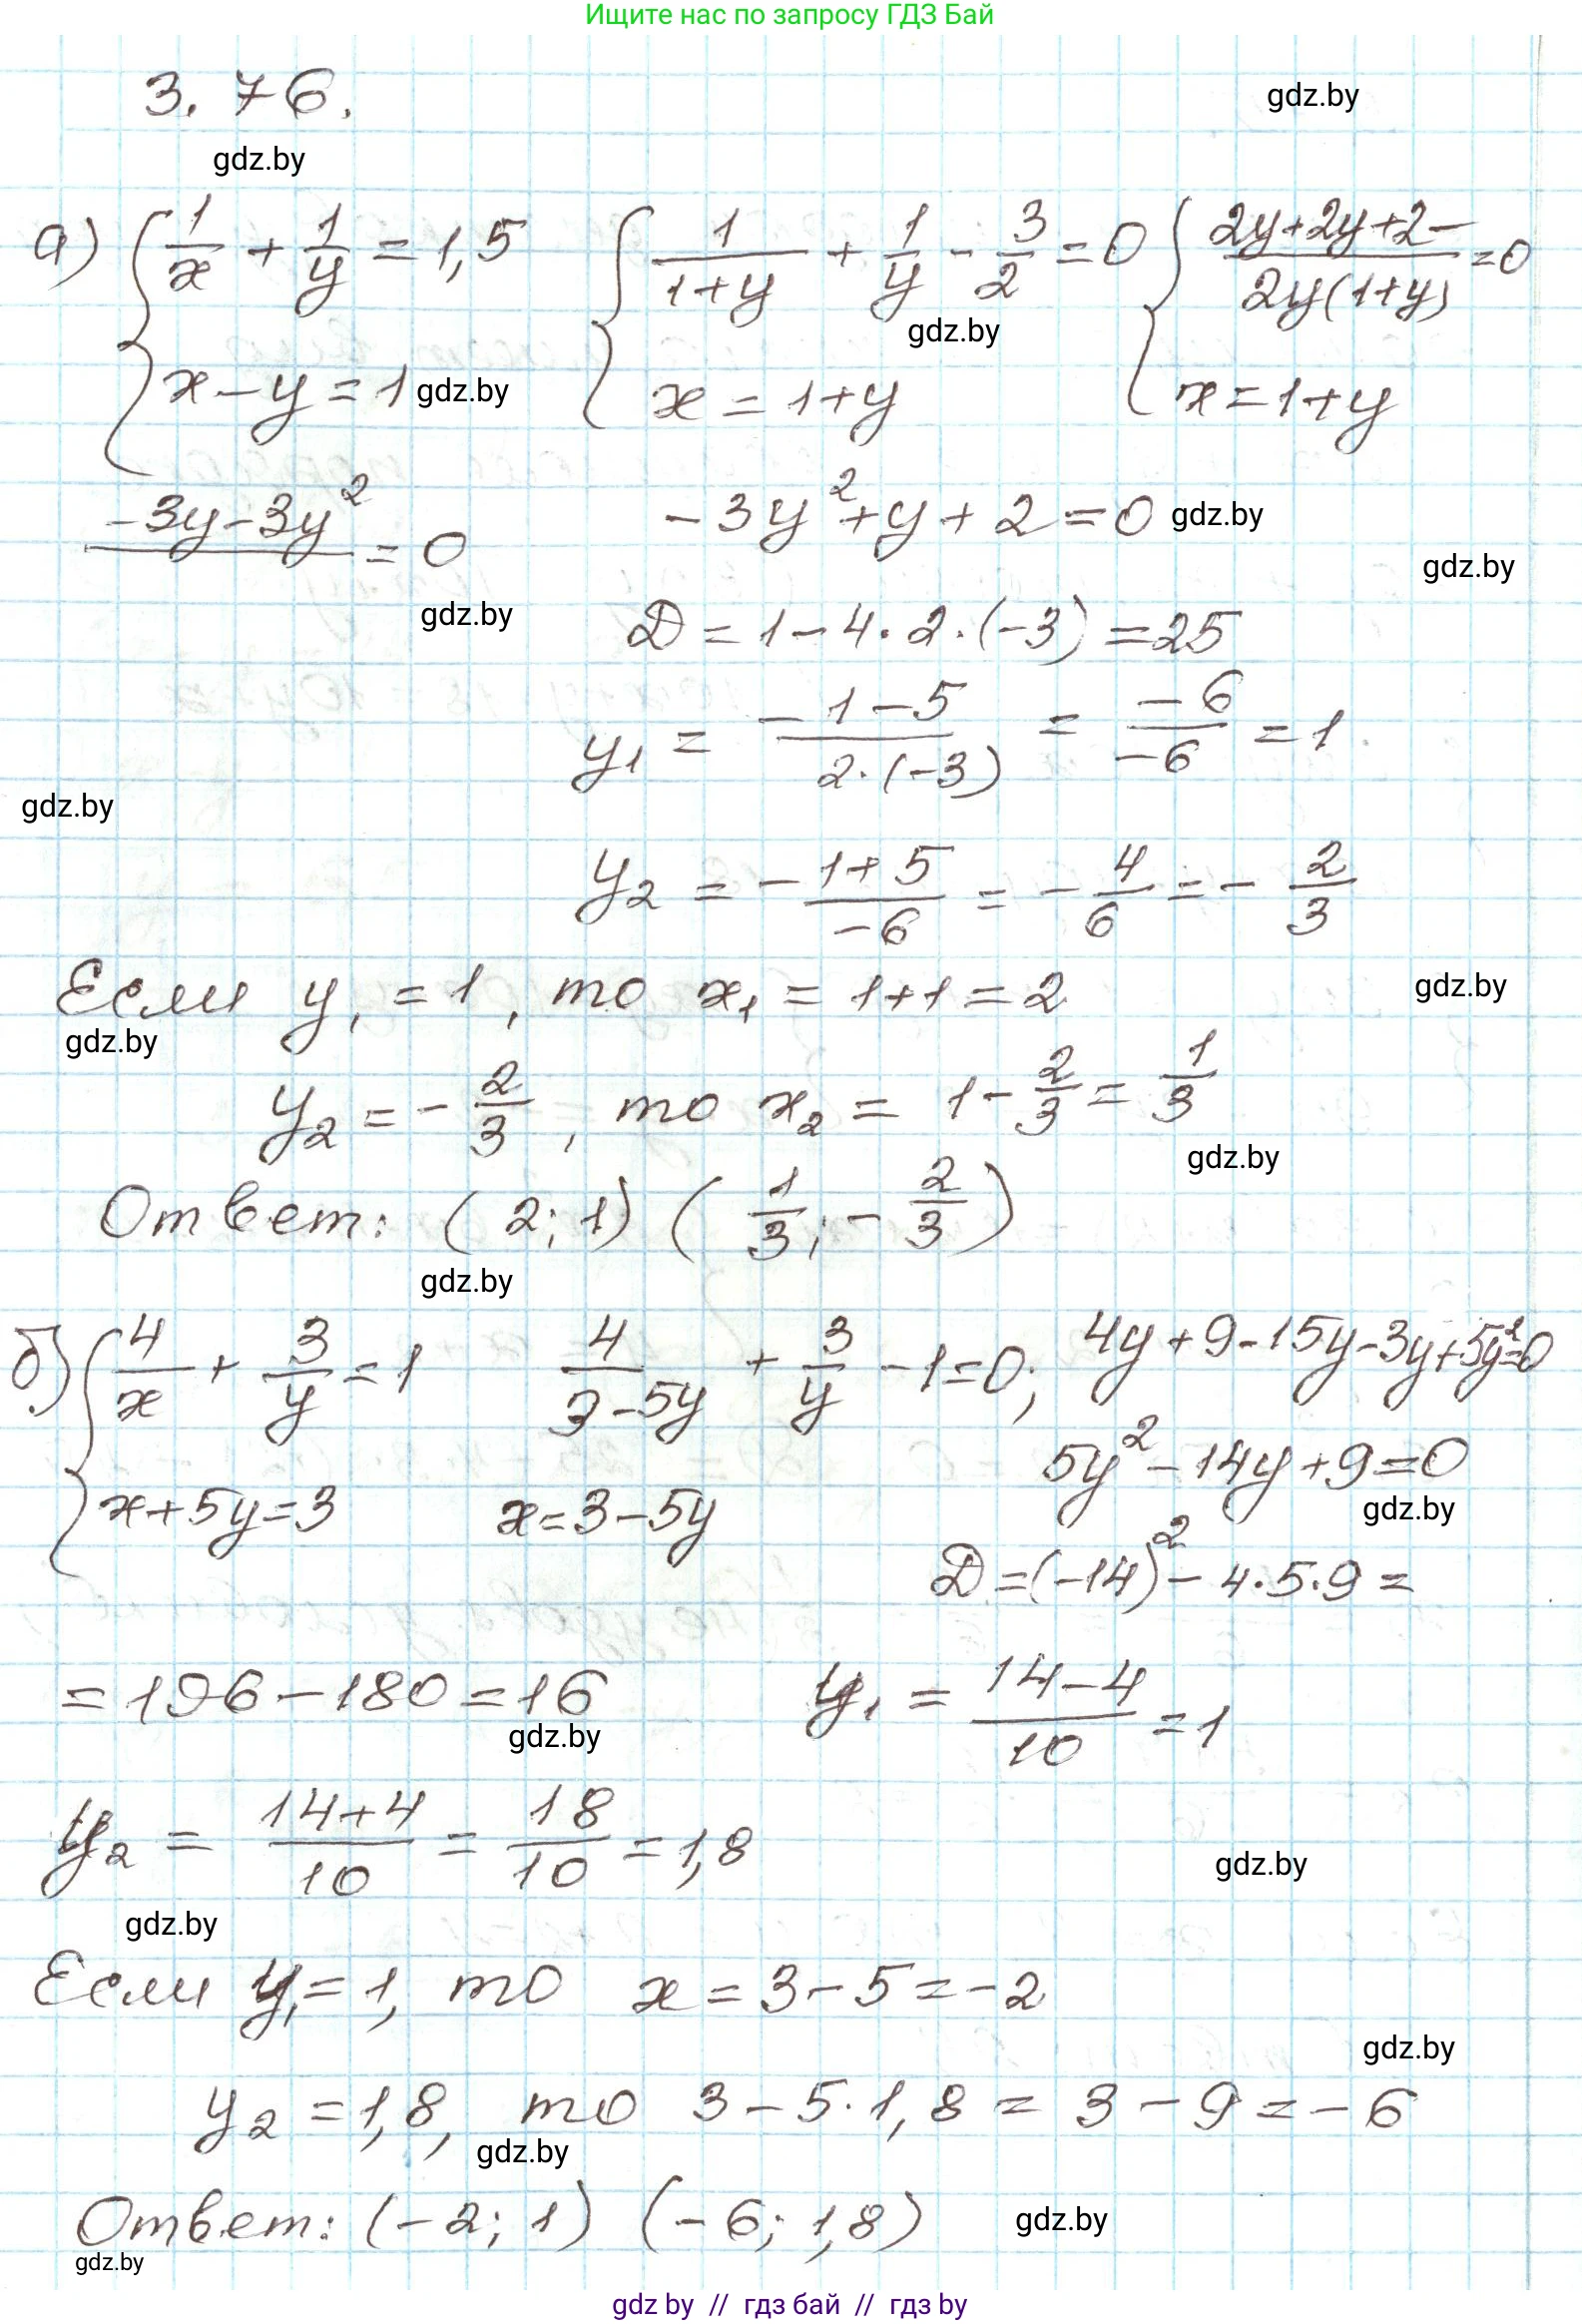 Ищите нас по запросу ГДЗ Бай
3.76.
gdz.by
gdz.by
а) { 1/x + 1/y = 1,5 { 1/(1+y) + 1/y - 3/2 = 0 { (2y+2y+2-)/(2y(1+y)) = 0
gdz.by
x - y = 1 gdz.by x = 1+y x = 1+y
(-3y-3y²)/ = 0 -3y²+y+2=0 gdz.by
gdz.by
gdz.by
D = 1-4·2·(-3) = 25
y₁ = (-1-5)/(2·(-3)) = (-6)/(-6) = 1
gdz.by
y₂ = -(1+5)/(-6) = -4/6 = -2/3
Если y₁ = 1, то x₁ = 1+1 = 2 gdz.by
gdz.by
y₂ = -2/3, то x₂ = 1-2/3 = 1/3
gdz.by
Ответ: (2;1) (1/3; -2/3)
gdz.by
б) { 4/x + 3/y = 1 4/(3-5y) + 3/y - 1 = 0; 4y+9-15y-3y+5y²=0
5y²-14y+9=0
x+5y=3 x=3-5y gdz.by
D=(-14)²-4·5·9=
=196-180=16 y₁ = (14-4)/10 = 1
gdz.by
y₂ = (14+4)/10 = 18/10 = 1,8
gdz.by
gdz.by
Если y₁=1, то x=3-5=-2
gdz.by
y₂=1,8, то 3-5·1,8=3-9=-6
gdz.by
Ответ: (-2;1) (-6;1,8) gdz.by
gdz.by
gdz by // гдз бай // gdz by